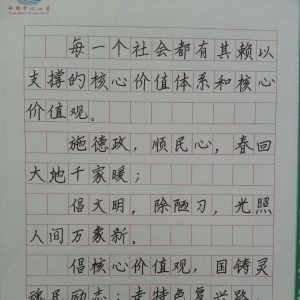 每一个社会都有其赖以
支撑的核心价值体系和核心
价值观。
施德政，顺民心，春回
大地千家暖；
倡文明，除陋习，光照
人间万象新。
倡核心价值观，国铸灵
魂民励志；走特色复兴路